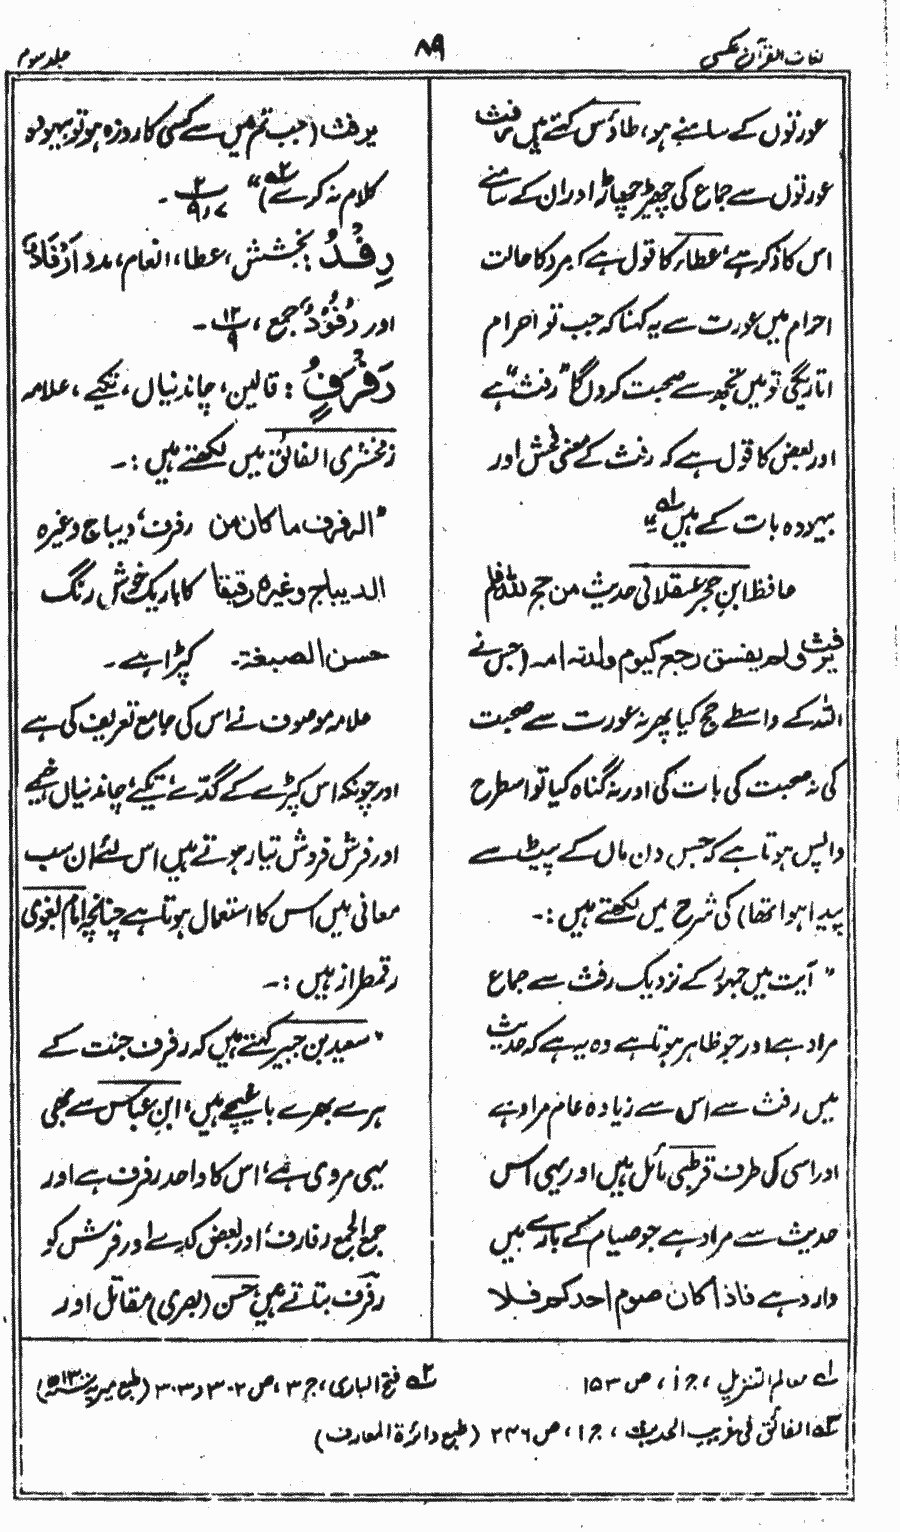 لغات القرآن عکسی
۸۹
جلد سوم
عورتوں کے سامنے ہو، طاؤس کہتے ہیں رفث
عورتوں سے جماع کی چھیڑ چھاڑ اور ان کے سامنے
اس کا ذکر ہے، عطاء کا قول ہے کہ مرد کا حالت
احرام میں عورت سے یہ کہنا کہ جب تو احرام
اتاریگی تو میں تجھ سے صحبت کروں گا "رفث" ہے
اور بعض کا قول ہے کہ رفث کے معنی فحش اور
بیہودہ بات کے ہیں ؎۱"
حافظ ابن حجر عسقلانی حدیث من حج للہ فلم
یرفث ولم یفسق رجع کیوم ولدتہ امہ (جس نے
اللہ کے واسطے حج کیا پھر نہ عورت سے صحبت
کی نہ صحبت کی بات کی اور نہ گناہ کیا تو اسطرح
واپس ہوتا ہے کہ جس دن ماں کے پیٹ سے
پیدا ہوا تھا) کی شرح میں لکھتے ہیں :-
"آیت میں جمہور کے نزدیک رفث سے جماع
مراد ہے اور جو ظاہر ہوتا ہے وہ یہ ہے کہ حدیث
میں رفث سے اس سے زیادہ عام مراد ہے
اور اسی کی طرف قرطبی مائل ہیں اور یہی اس
حدیث سے مراد ہے جو صیام کے بارے میں
وارد ہے فاذا کان صوم احدکم فلا
یرفث (جب تم میں سے کسی کا روزہ ہو تو بیہودہ
کلام نہ کرے ؎۲)" ۲/۹،۷ -
رِفْدُ : بخشش، عطا، انعام، مدد اَرْفَادٌ
اور رُفُوْدٌ جمع، ۱۲/۹ -
رَفْرَفٍ : قالین، چاندنیاں، تکیے، علامہ
زمخشری الفائق میں لکھتے ہیں :-
"الرفرف ماکان من رفرف، دیباج وغیرہ
الدیباج وغیرہ رقیقا کا باریک خوش رنگ
حسن الصبغۃ - کپڑا ہے -
علامہ موصوف نے اس کی جامع تعریف کی ہے
اور چونکہ اس کپڑے کے گدّے، تکیے، چاندنیاں خیمے
اور فرش فروش تیار ہوتے ہیں اس لئے ان سب
معانی میں اس کا استعمال ہوتا ہے چنانچہ امام بغوی
رقمطراز ہیں :-
"سعید بن جبیر کہتے ہیں کہ رفرف جنت کے
ہرے بھرے باغیچے ہیں، ابن عباس سے بھی
یہی مروی ہے، اس کا واحد رفرف ہے اور
جمع الجمع رفارف، اور بعض کپڑے اور فرش کو
رفرف بتاتے ہیں، حسن (بصری) مقاتل اور
؎۱ معالم التنزیل، ج ۱، ص ۱۵۳
؎۲ فتح الباری، ج ۳، ص ۳۰۲ و ۳۰۳ (طبع میریہ
؎۳ الفائق فی غریب الحدیث، ج ۱، ص ۲۳۶ (طبع دائرۃ المعارف)